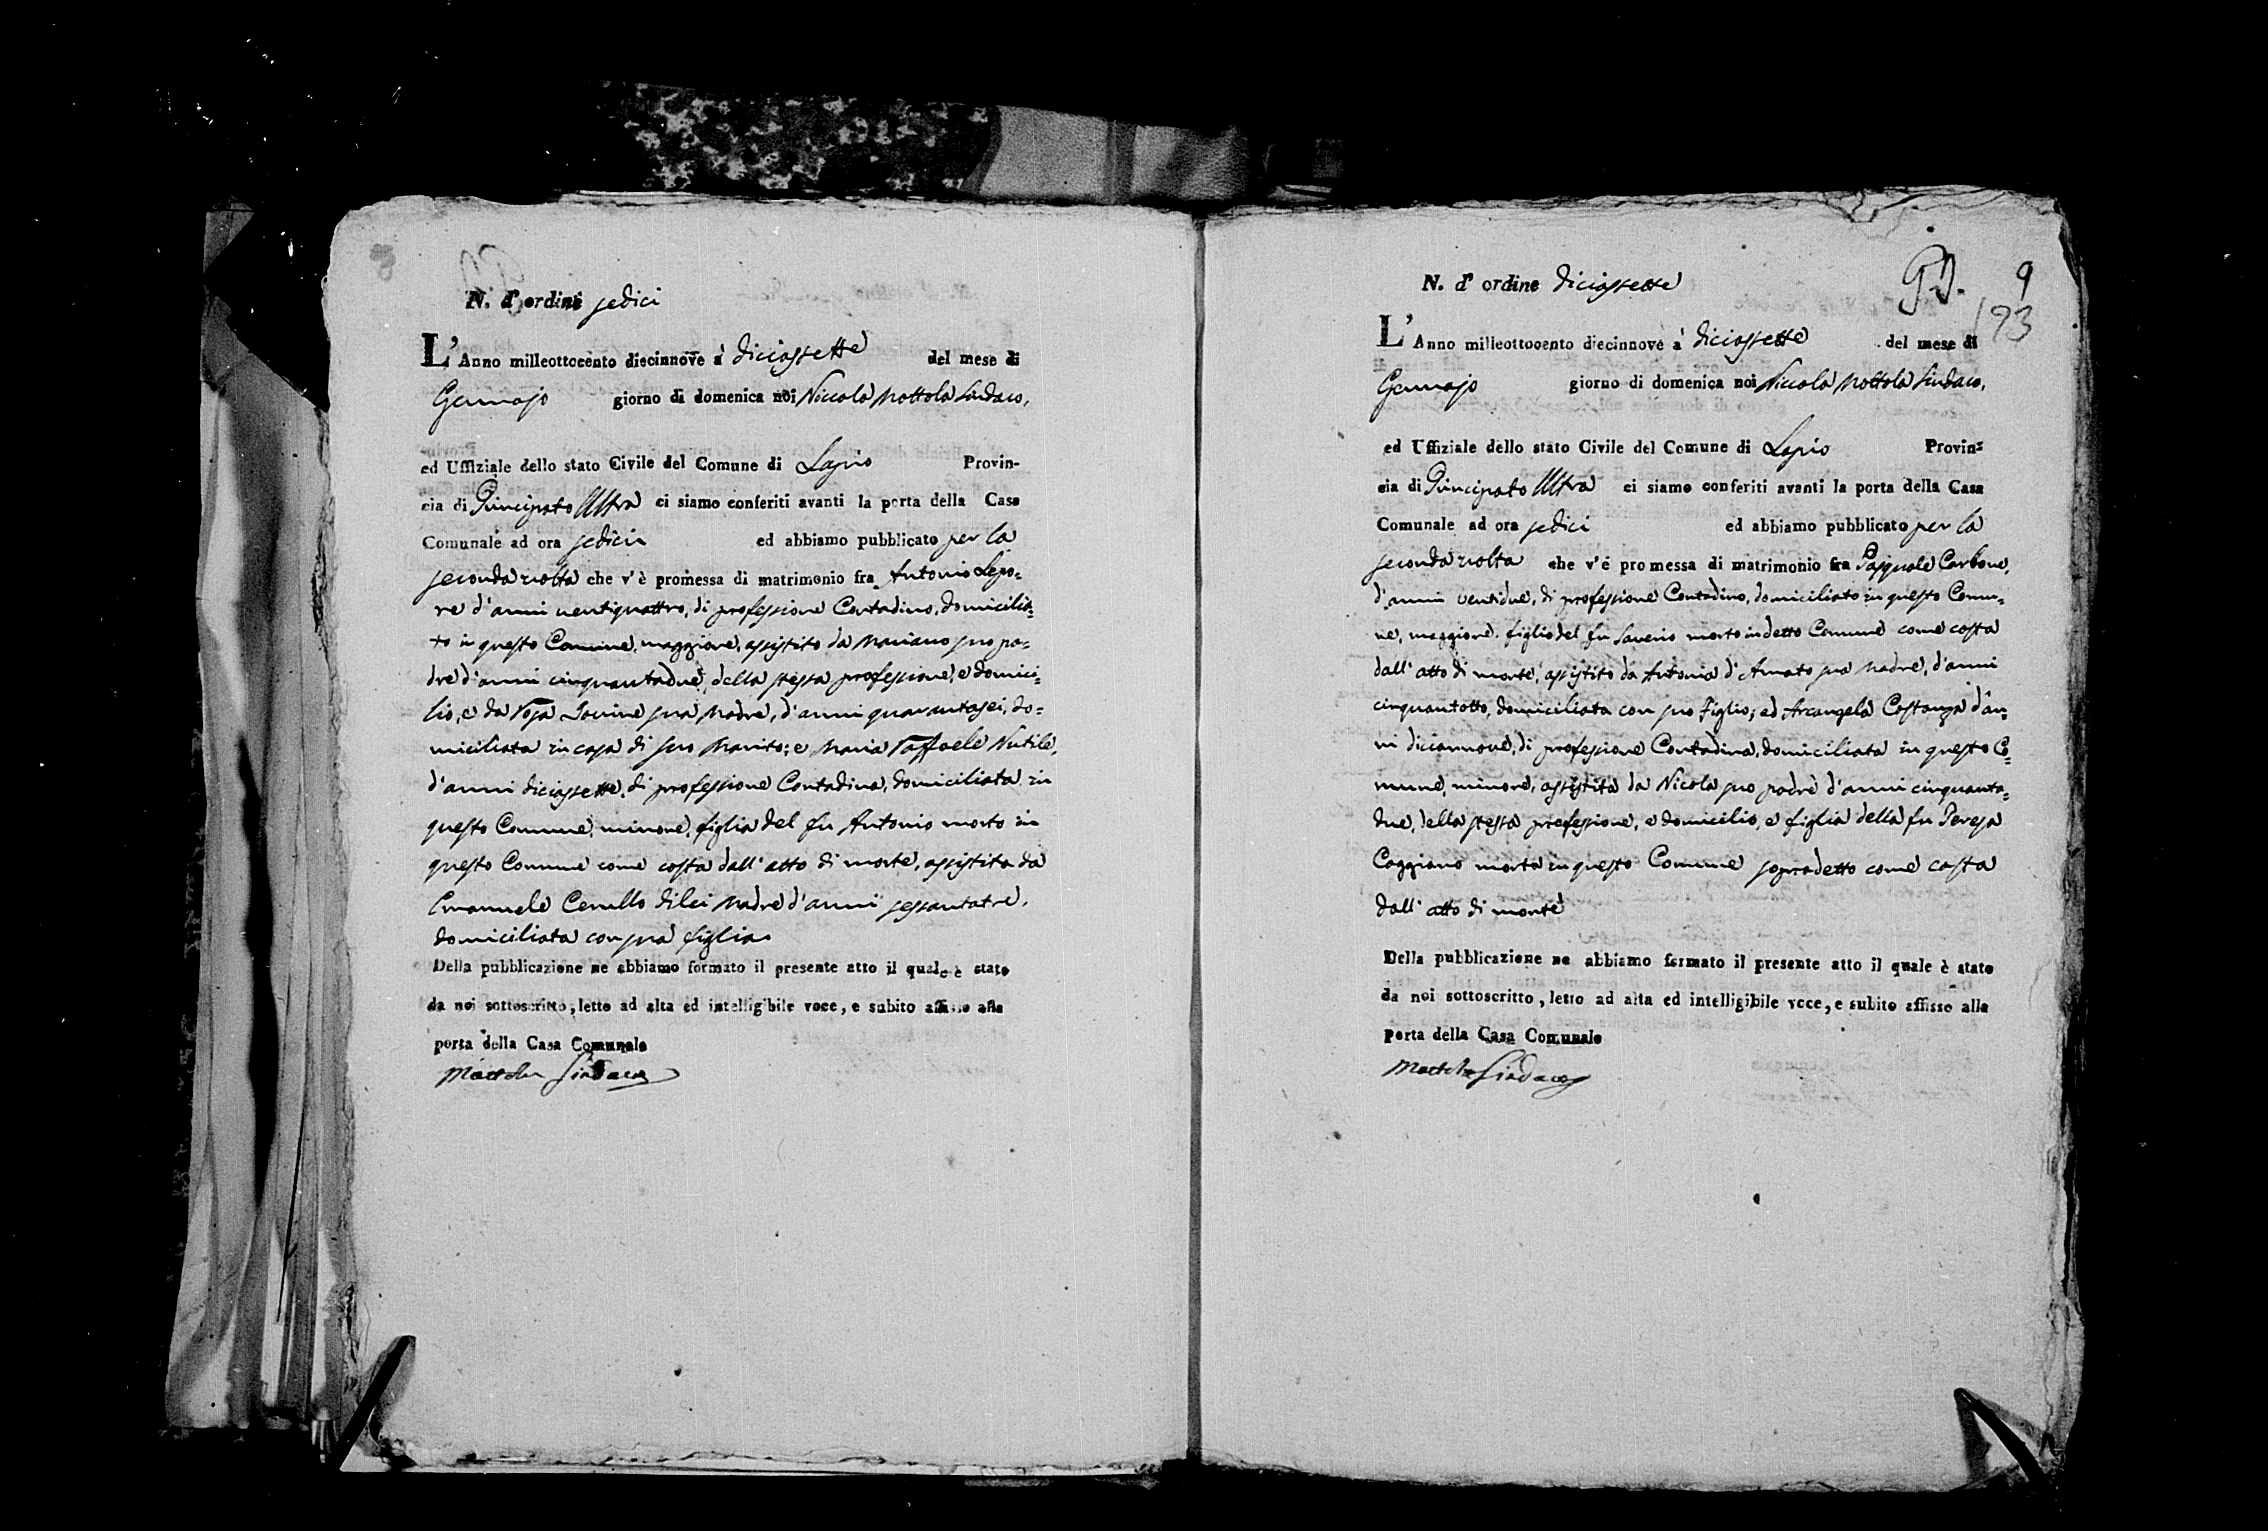 N. d'ordine sedici
L'Anno milleottocento diecinnove à diciassette del mese di
Gennajo giorno di domenica noi Niccola Mottola Sindaco,
ed Uffiziale dello stato Civile del Comune di Lapio Provin-
cia di Principato Ultra ci siamo conferiti avanti la porta della Casa
Comunale ad ora sedici ed abbiamo pubblicato per la
seconda volta che v'è promessa di matrimonio fra Antonio Lepo-
re d'anni ventiquattro, di professione Contadino, domicilia-
to in questo Comune, maggiore, assistito da Mariano suo pa-
dre d'anni cinquantadue, della stessa professione, e domici-
lio, e da Rosa Iovine sua Madre, d'anni quarantasei, do-
miciliata in casa di suo Marito; e Maria Raffaele Nutile,
d'anni diciassette, di professione Contadina, domiciliata in
questo Comune, minore, figlia del fu Antonio morto in
questo Comune come costa dall'atto di morte, assistita da
Emanuele Cerullo di lei Madre d'anni sessantatre,
domiciliata con sua figlia.
Della pubblicazione ne abbiamo formato il presente atto il quale è stato
da noi sottoscritto, letto ad alta ed intelligibile voce, e subito affisso alla
porta della Casa Comunale
Mottola Sindaco
P.D. 9
193
N. d'ordine diciassette
L'Anno milleottocento diecinnove à diciassette del mese di
Gennajo giorno di domenica noi Niccola Mottola Sindaco,
ed Uffiziale dello stato Civile del Comune di Lapio Provin-
cia di Principato Ultra ci siamo conferiti avanti la porta della Casa
Comunale ad ora sedici ed abbiamo pubblicato per la
seconda volta che v'è promessa di matrimonio fra Pasquale Carbone,
d'anni ventidue, di professione Contadino, domiciliato in questo Comu-
ne, maggiore, figlio del fu Saverio morto in detto Comune come costa
dall'atto di morte, assistito da Antonia d'Amato sua Madre, d'anni
cinquantotto, domiciliata con suo Figlio; ed Arcangela Costanza d'an-
ni diciannove, di professione Contadina, domiciliata in questo Co-
mune, minore, assistita da Nicola suo padre d'anni cinquanta-
due, della stessa professione, e domicilio, e figlia della fu Teresa
Caggiano morta in questo Comune sopradetto come costa
dall'atto di morte
Della pubblicazione ne abbiamo formato il presente atto il quale è stato
da noi sottoscritto, letto ad alta ed intelligibile voce, e subito affisso alla
porta della Casa Comunale
Mottola Sindaco